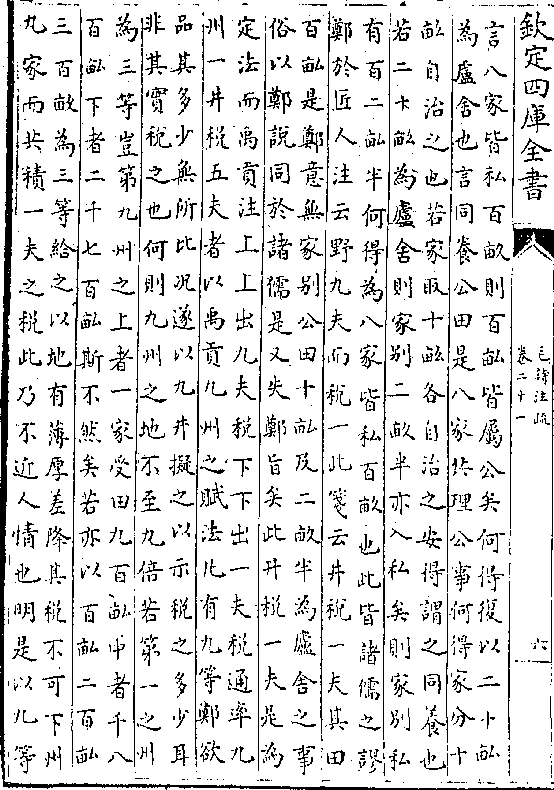 欽定四庫全書
毛詩注疏
卷二十一
六
言八家皆私百畝則百畝皆屬公矣何得復以二十畝
為廬舍也言同養公田是八家共理公事何得家分十
畝自治之也若家取十畝各自治之安得謂之同養也
若二十畝為廬舍則家別二畝半亦入私矣則家別私
有百二畝半何得為八家皆私百畝也此皆諸儒之謬
鄭於匠人注云野九夫而税一此箋云井税一夫其田
百畝是鄭意無家別公田十畝及二畝半為廬舍之事
俗以鄭説同於諸儒是又失鄭旨矣此井税一夫是為
定法而禹貢注上上出九夫税下下出一夫税通率九
州一井税五夫者以禹貢九州之賦法凡有九等鄭欲
品其多少無所比況遂以九井擬之以示税之多少耳
非其實税之也何則九州之地不至九倍若第一之州
為三等豈第九州之上者一家受田九百畝中者千八
百畝下者二千七百畝斯不然矣若亦以百畝二百畝
三百畝為三等給之以地有薄厚差降其税不可下州
九家而共積一夫之税此乃不近人情也明是以九等